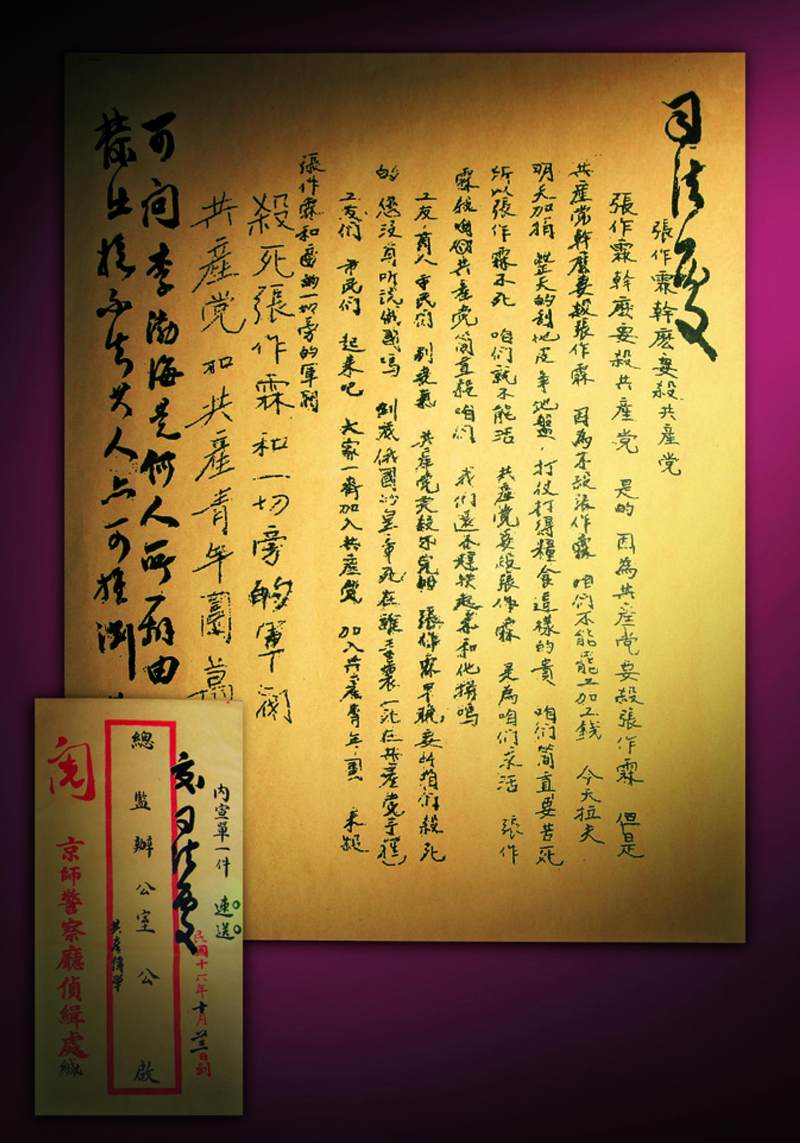 司法處
張作霖幹麽要殺共產党
張作霖幹麽要殺共產党　是的　因為共產党要殺張作霖　但是
共產党幹麽要殺張作霖　因為不殺張作霖　咱们不能罷工加工錢　今天拉夫
明天加捐　整天的刮地皮争地盤，打仗打得糧食這樣的貴　咱们简直要苦死
所以張作霖不死　咱们就不能活　共產党要殺張作霖　是為咱们求活　張作
霖共產党简直殺咱们　我们還不趕快起來和他拼嗎
工友，商人　市民们　别丧氣　共產党是殺不完的　張作霖早晚要給咱们殺死
的　您没有听說俄國嗎　到底俄國沙皇帝死在誰手裏（死在共產党手裡）
工友们　市民们　起來吧　大家一齊加入共產党　加入共產青年團　來殺
張作霖和一切旁的軍閥
殺死張作霖和一切旁的軍閥
共產党和共產青年團萬
可向李渤海是何人所由
其人亦可推測
内宣單一件　速送
交司法處
民國十六年十月日到
總監辦公室公啟
共產傳單
京師警察廳偵緝處緘
閱